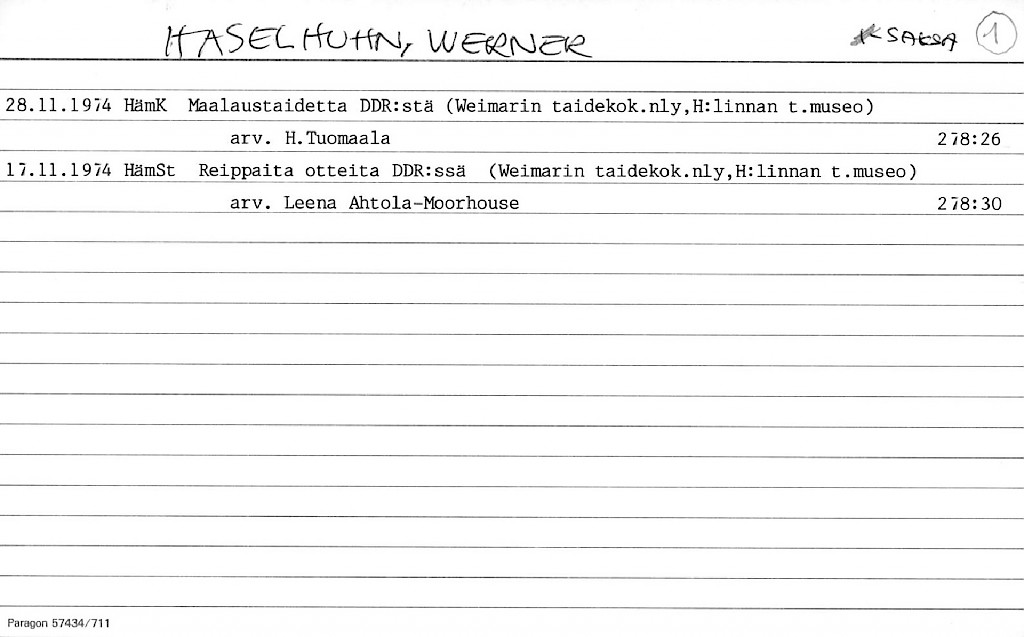 HASELHUHN, WERNER SAKSA 1
28.11.1974 HämK Maalaustaidetta DDR:stä (Weimarin taidekok.nly,H:linnan t.museo)
arv. H.Tuomaala 278:26
17.11.1974 HämSt Reippaita otteita DDR:ssä (Weimarin taidekok.nly,H:linnan t.museo)
arv. Leena Ahtola-Moorhouse 278:30
Paragon 57434/711